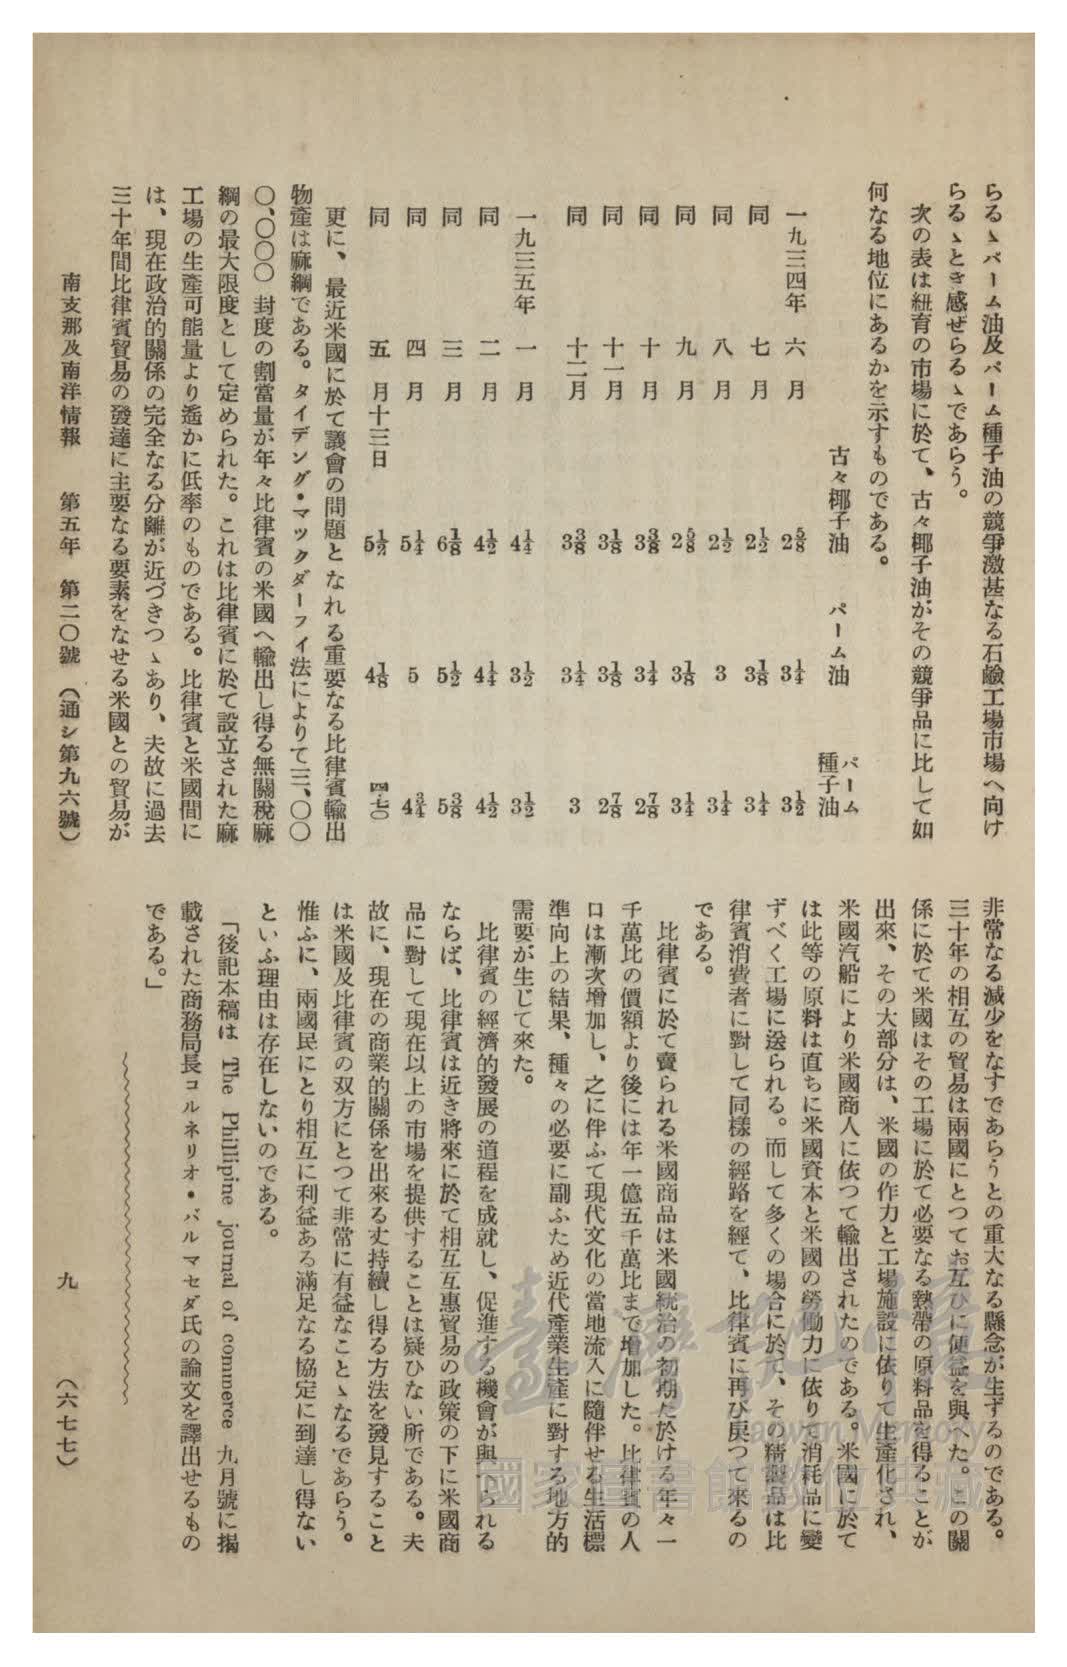 らるゝパーム油及パーム種子油の競爭激甚なる石鹼工場市場へ向け
らるゝとき感ぜらるゝであらう。
次の表は紐育の市場に於て、古々椰子油がその競爭品に比して如
何なる地位にあるかを示すものである。
古々椰子油 パーム油 パーム種子油
一九三四年 六月 2⅝ 3¼ 3½
同 七月 2½ 3⅛ 3¼
同 八月 2½ 3 3¼
同 九月 2⅝ 3⅛ 3¼
同 十月 3⅜ 3¼ 2⅞
同 十一月 3⅛ 3⅛ 2⅞
同 十二月 3⅜ 3¼ 3
一九三五年 一月 4¼ 3½ 3½
同 二月 4½ 4¼ 4½
同 三月 6⅛ 5½ 5⅜
同 四月 5¼ 5 4¾
同 五月十三日 5½ 4⅛ 四・七〇
更に、最近米國に於て議會の問題となれる重要なる比律賓輸出
物產は麻綱である。タイデング・マックダーフイ法によりて三、〇〇
〇、〇〇〇封度の割當量が年々比律賓の米國へ輸出し得る無關稅麻
綱の最大限度として定められた。これは比律賓に於て設立された麻
工場の生產可能量より遙かに低率のものである。比律賓と米國間に
は、現在政治的關係の完全なる分離が近づきつゝあり、夫故に過去
三十年間比律賓貿易の發達に主要なる要素をなせる米國との貿易が
非常なる減少をなすであらうとの重大なる懸念が生ずるのである。
三十年の相互の貿易は兩國にとつてお互ひに便益を與へた。この關
係に於て米國はその工場に於て必要なる熱帶の原料品を得ることが
出來、その大部分は、米國の作力と工場施設に依りて生產化され、
米國汽船により米國商人に依つて輸出されたのである。米國に於て
は此等の原料は直ちに米國資本と米國の勞働力に依りて消耗品に變
ずべく工場に送られる。而して多くの場合に於て、その精製品は比
律賓消費者に對して同樣の經路を經て、比律賓に再び戾つて來るの
である。
比律賓に於て賣られる米國商品は米國統治の初期に於ける年々一
千萬比の價額より後には年一億五千萬比まで增加した。比律賓の人
口は漸次增加し、之に伴ふて現代文化の當地流入に隨伴せる生活標
準向上の結果、種々の必要に副ふため近代產業生產に對する地方的
需要が生じて來た。
比律賓の經濟的發展の道程を成就し、促進する機會が與へられる
ならば、比律賓は近き將來に於て相互互惠貿易の政策の下に米國商
品に對して現在以上の市場を提供することは疑ひない所である。夫
故に、現在の商業的關係を出來る丈持續し得る方法を發見すること
は米國及比律賓の双方にとつて非常に有益なことゝなるであらう。
惟ふに、兩國民にとり相互に利益ある滿足なる協定に到達し得ない
といふ理由は存在しないのである。
「後記本稿は The Phillipine journal of commerce 九月號に揭
載された商務局長コルネリオ・バルマセダ氏の論文を譯出せるもの
である。」
南支那及南洋情報 第五年 第二〇號 (通シ第九六號)
九 (六七七)
臺灣記憶
Taiwan Memory
國家圖書館數位典藏